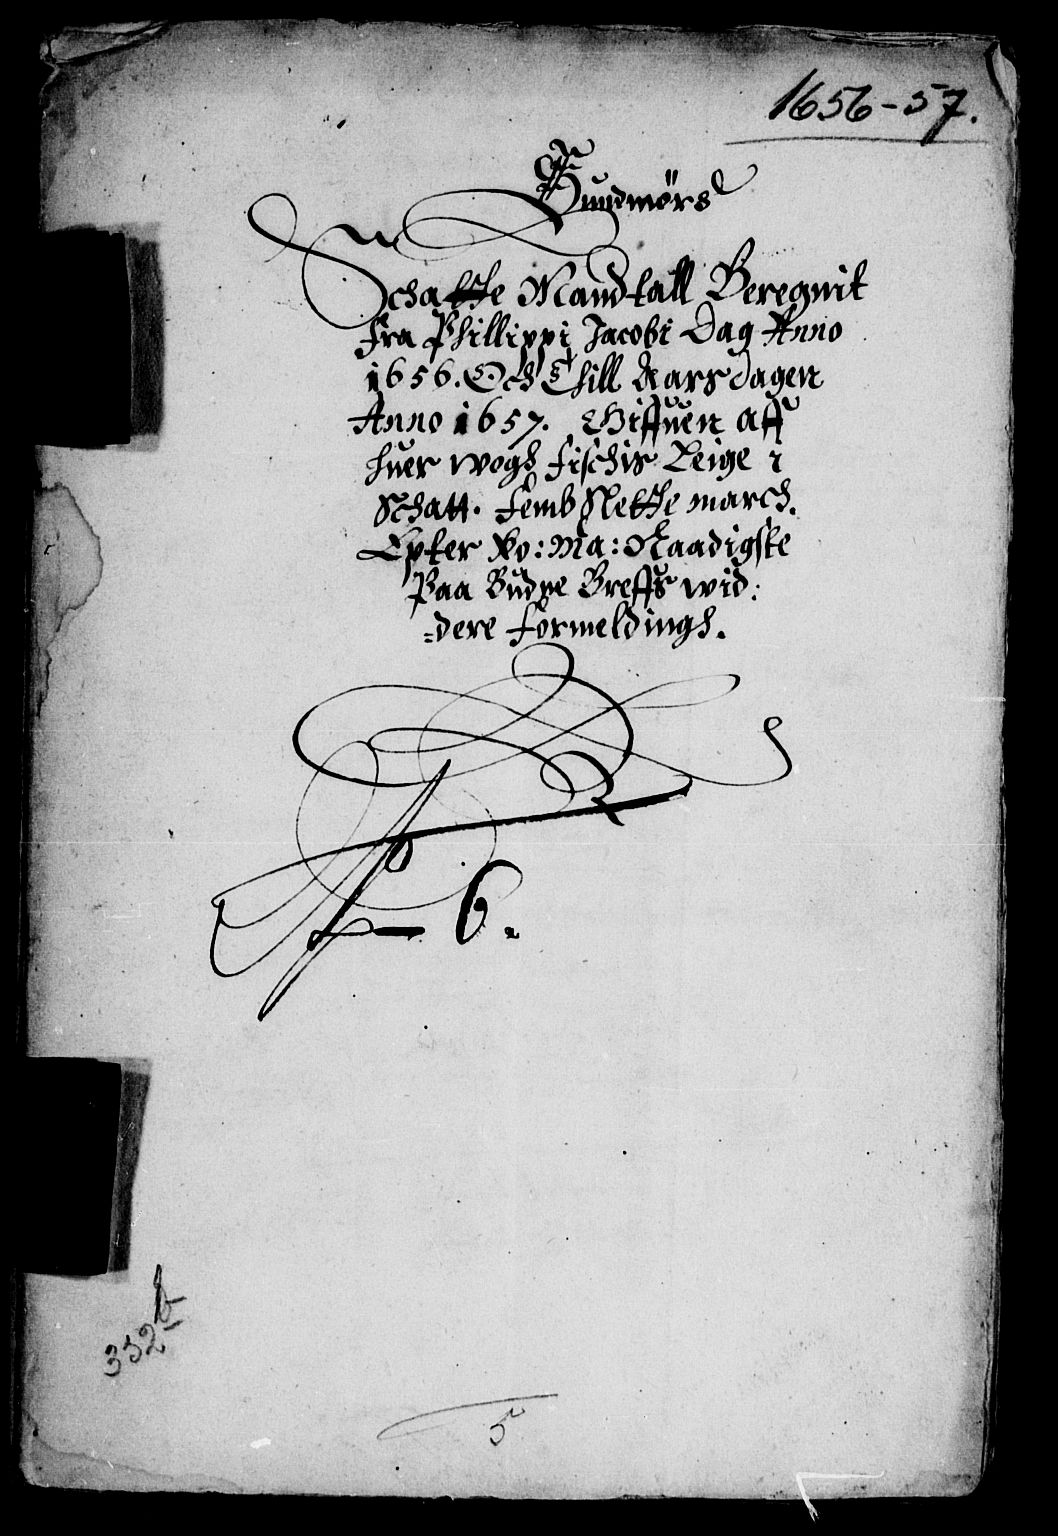 1656-57.
Sundmörs
Schatte Mandtall Beregnit
fra Phillippi Jacobi Dag Anno
1656. Och Thill Aarsdagen
Anno 1657. Giffuen aff
huer wogh fischis Leige i
Schatt. femb Slette march.
Epter Ko: Ma: Naadigste
Paa Budne Breffs wid:
=dere formeldingh.
6.
332 b
5